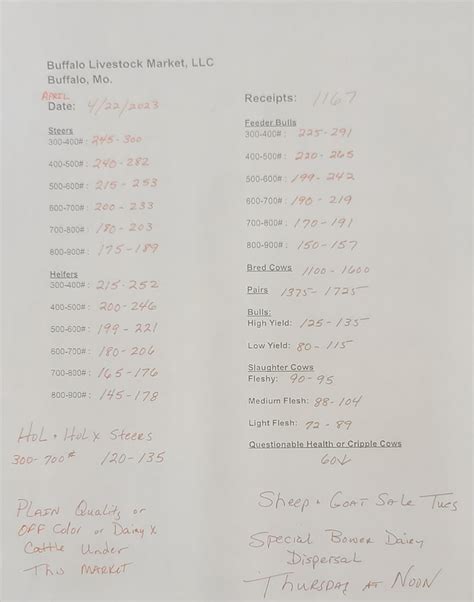 Buffalo Livestock Market, LLC
Buffalo, Mo.
APRIL
Date: 4/22/2023
Steers
300-400#: 245-300
400-500#: 240-282
500-600#: 215-253
600-700#: 200-233
700-800#: 180-203
800-900#: 175-189
Heifers
300-400#: 215-252
400-500#: 200-246
500-600#: 199-221
600-700#: 180-206
700-800#: 165-176
800-900#: 145-178
HOL + HOLX Steers
300-700# 120-135
PLAIN Quality or
OFF Color or Dairy X
Cattle Under
This MARKET
Receipts: 1167
Feeder Bulls
300-400#: 225-291
400-500#: 220-265
500-600#: 199-242
600-700#: 190-219
700-800#: 170-191
800-900#: 150-157
Bred Cows 1100-1600
Pairs 1375-1725
Bulls:
High Yield: 125-135
Low Yield: 80-115
Slaughter Cows
Fleshy: 90-95
Medium Flesh: 88-104
Light Flesh: 72-89
Questionable Health or Cripple Cows
60↓
Sheep + GOAT SALE TUES
Special Bower Dairy
Dispersal
THURSDAY AT NOON